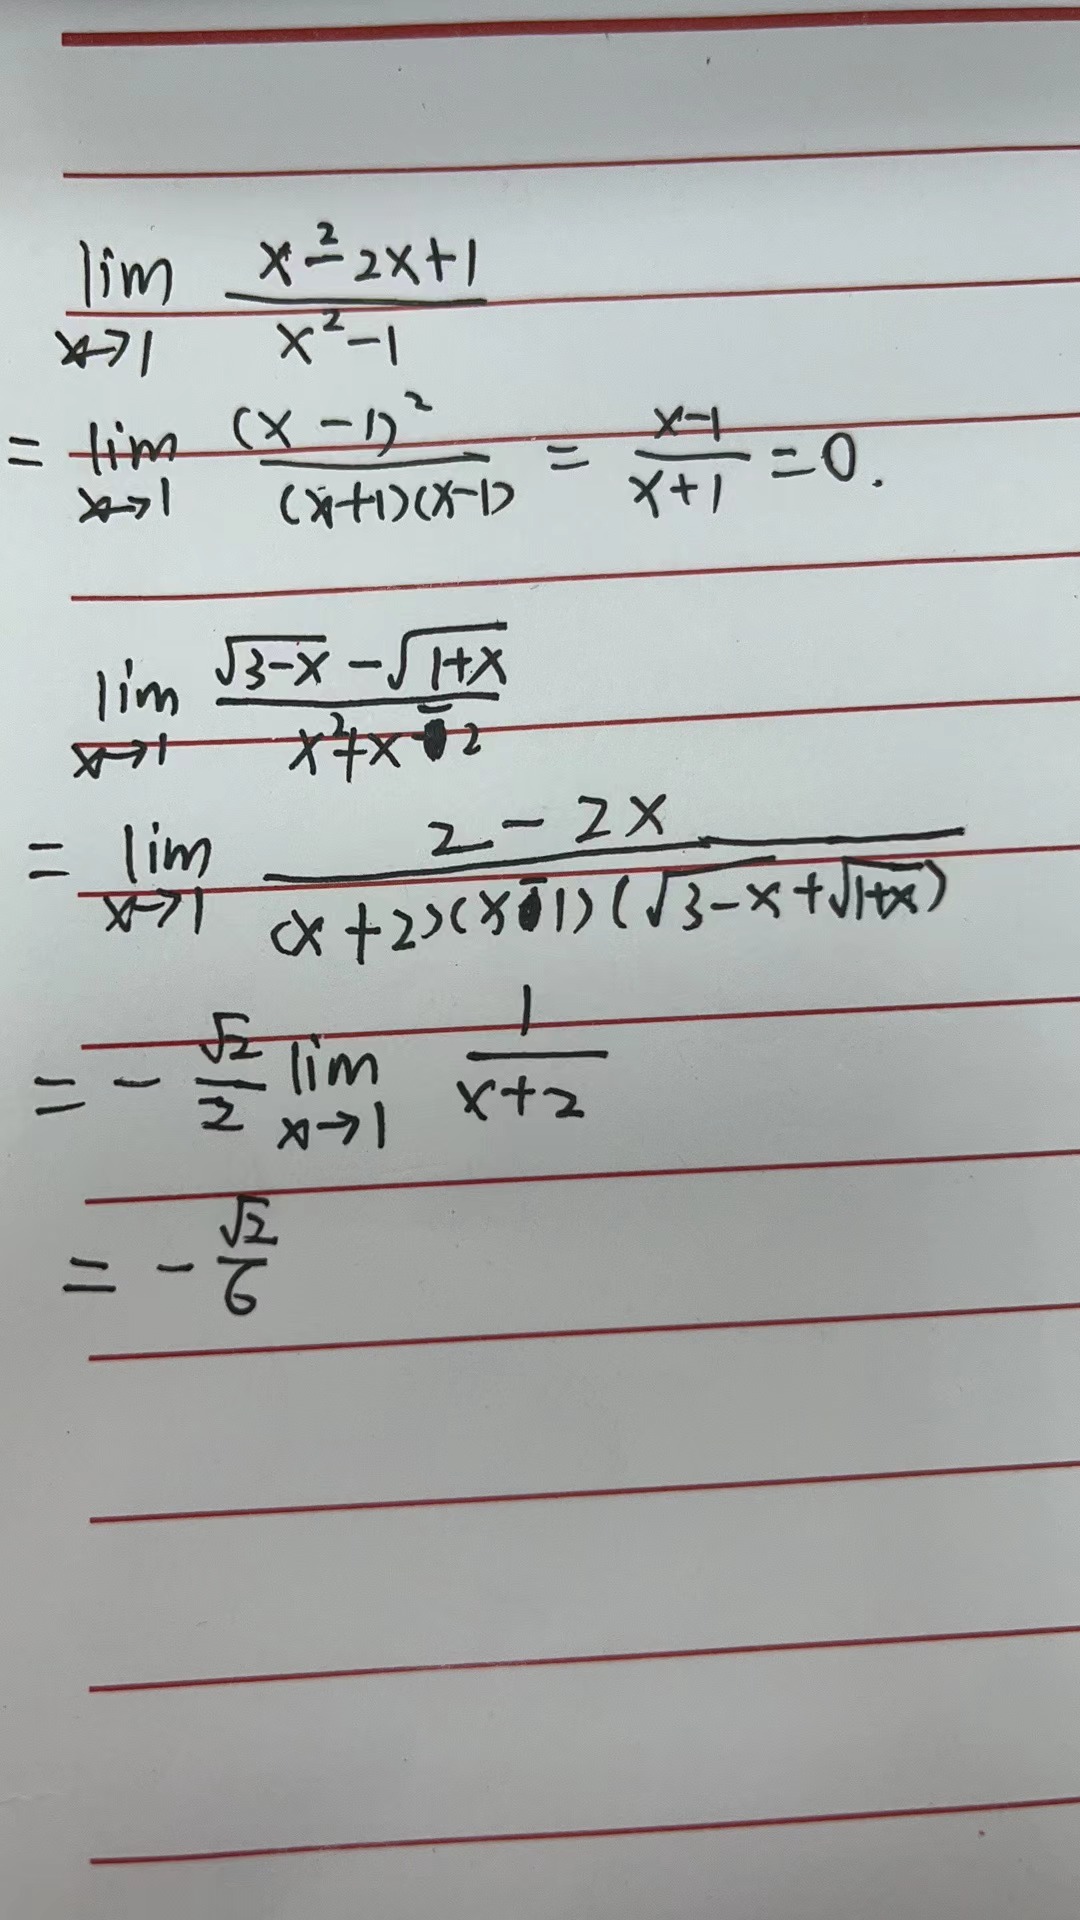 lim x→1 (x²-2x+1)/(x²-1)
= lim x→1 (x-1)²/((x+1)(x-1)) = (x-1)/(x+1) = 0.
lim x→1 (√(3-x) - √(1+x))/(x²+x-2)
= lim x→1 (2-2x)/((x+2)(x-1)(√(3-x)+√(1+x)))
= - √2/2 lim x→1 1/(x+2)
= - √2/6